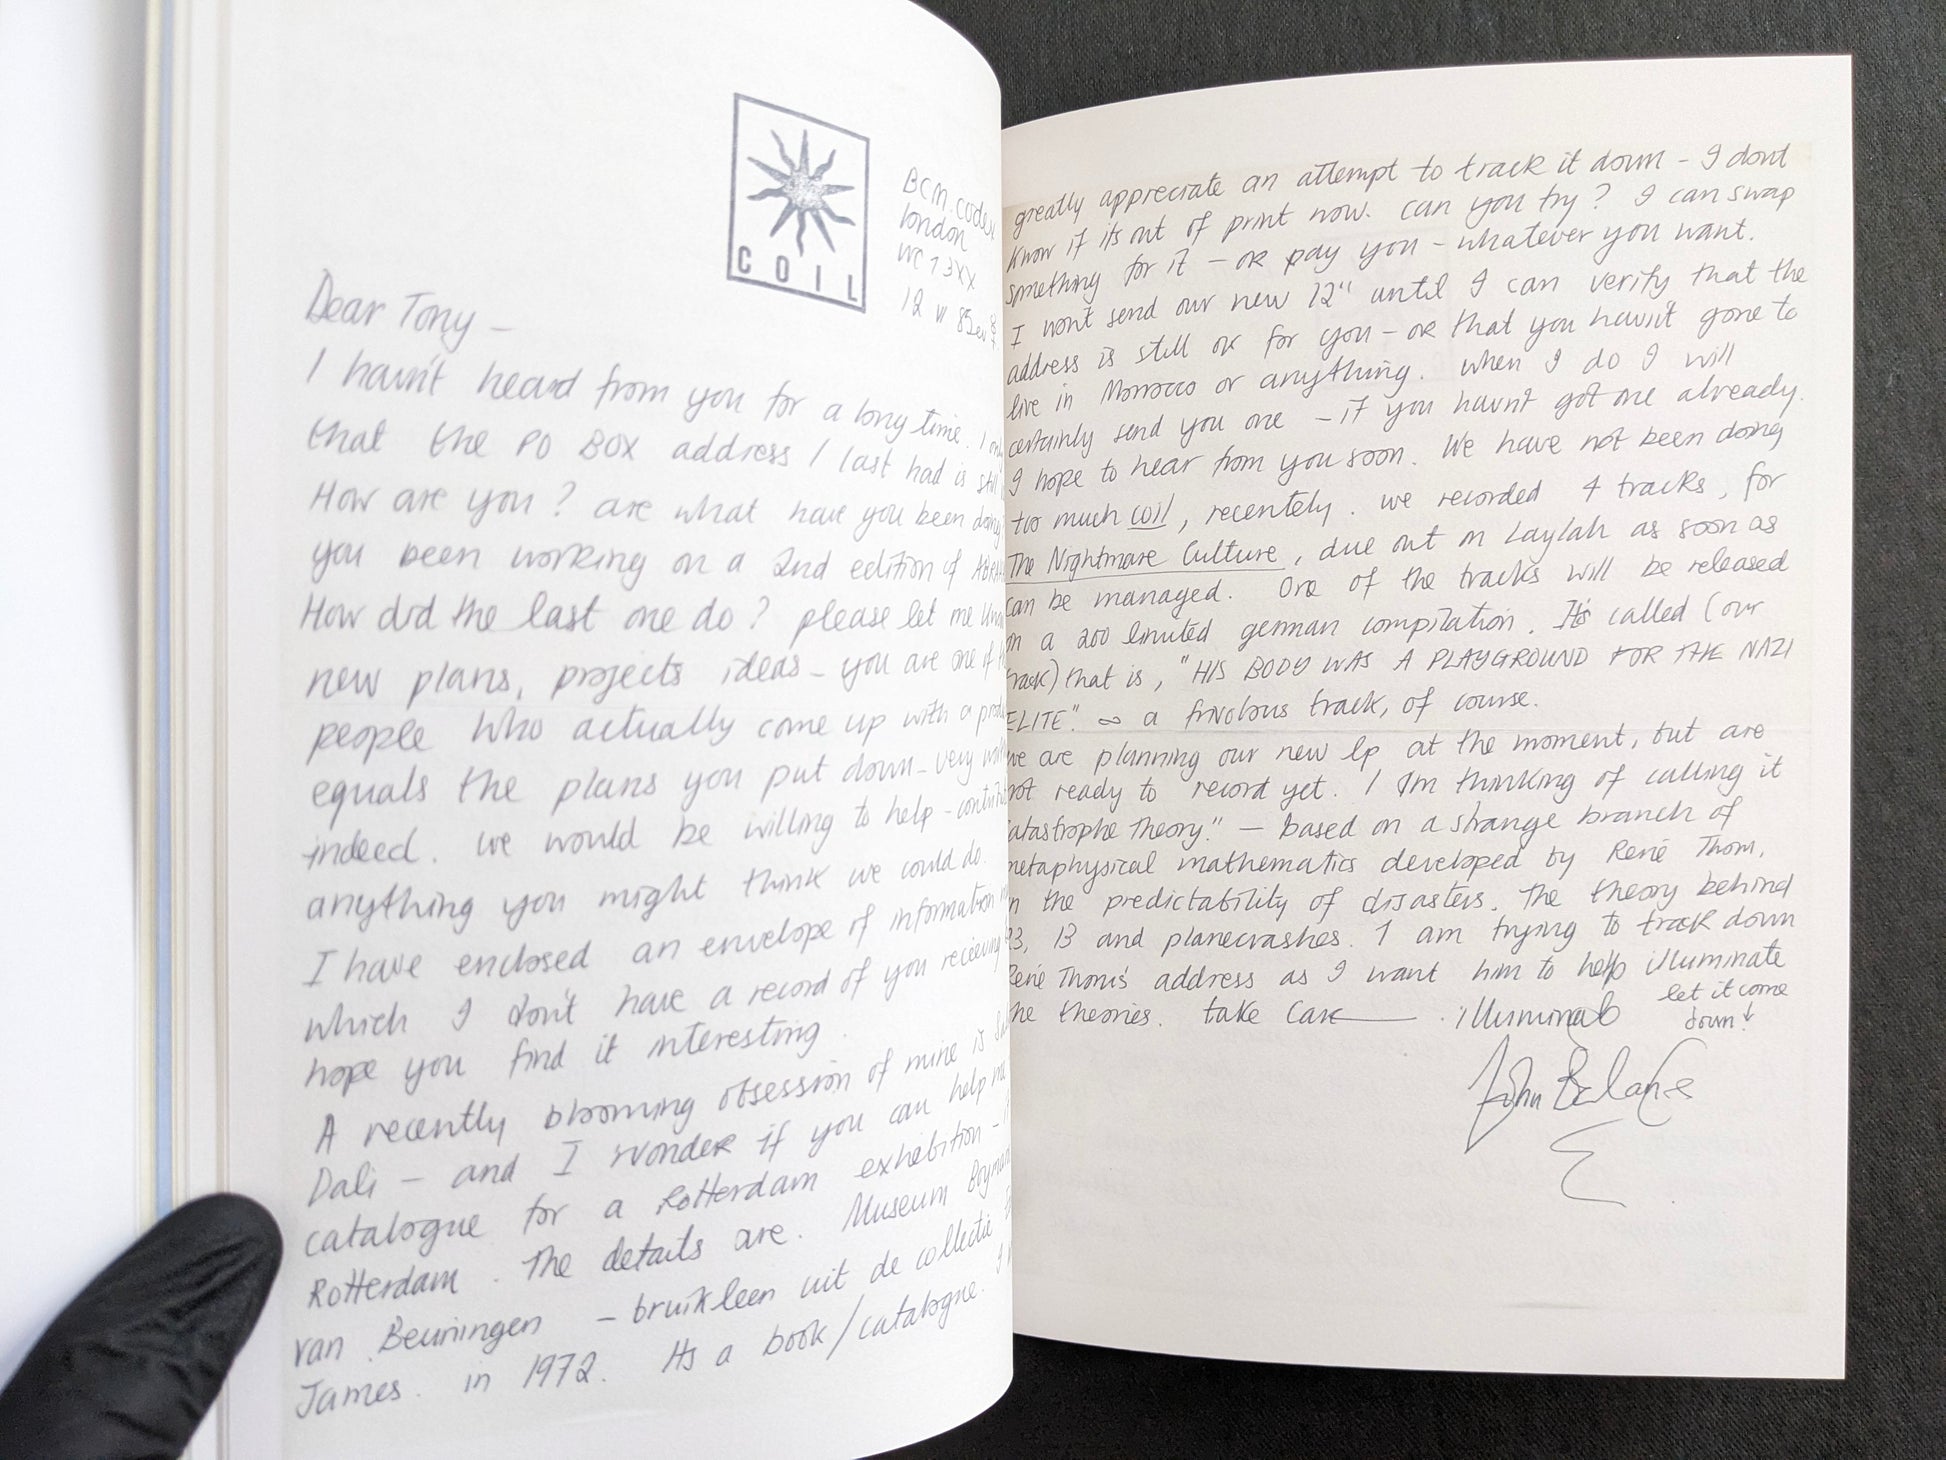 COIL
BCM codex
london
WC1 3XX
12 VI 85
Dear Tony -
I havn't heard from you for a long time. I
that the PO BOX address I last had is still
How are you? are what have you been doing
you been working on a 2nd edition of
How did the last one do? please let me
new plans, projects ideas - you are one of
people who actually come up with a
equals the plans you put down - very
indeed. we would be willing to help -
anything you might think we could do.
I have enclosed an envelope of information
which I don't have a record of you recieving
hope you find it interesting.
A recently blooming obsession of mine is
Dali - and I wonder if you can help me
catalogue for a Rotterdam exhibition -
Rotterdam. The details are. Museum
van Beuningen - bruikleen uit de collectie
James. in 1972. Its a book/catalogue. I
greatly appreciate an attempt to track it down - I dont
know if its out of print now. can you try? I can swap
something for it - or pay you - whatever you want.
I won't send our new 12" until I can verify that the
address is still ok for you - or that you havn't gone to
live in Morrocco or anything. when I do I will
certainly send you one - if you havn't got one already.
I hope to hear from you soon. We have not been doing
too much coil, recentely. we recorded 4 tracks, for
The Nightmare Culture, due out on Laylah as soon as
can be managed. One of the tracks will be released
on a 200 limited german compilation. It's called (our
track) that is, "HIS BODY WAS A PLAYGROUND FOR THE NAZI
ELITE." ∞ a frivolous track, of course.
we are planning our new lp at the moment, but are
not ready to record yet. I Im thinking of calling it
catastrophe theory." - based on a strange branch of
metaphysical mathematics developed by René Thom,
on the predictability of disasters. The theory behind
23, 13 and planecrashes. I am trying to track down
René Thom's address as I want him to help illuminate
the theories. take care
let it come
down! ↓
John Balance